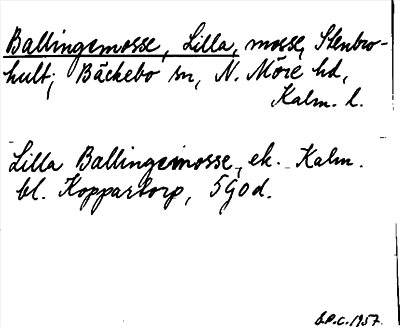 Ballingsmosse, Lilla, mosse, Stenbro-
hult; Bäckebo sn, N. Möre hd,
Kalm. l.
Lilla Ballingsmosse, ek. Kalm.
bl. Koppartorp, 5God.
S.P.C. 1957.